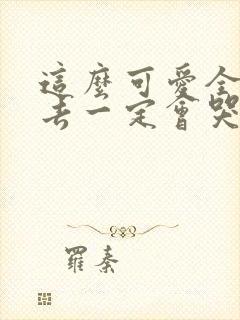 這麼可愛全
去一定會哭
羅秦